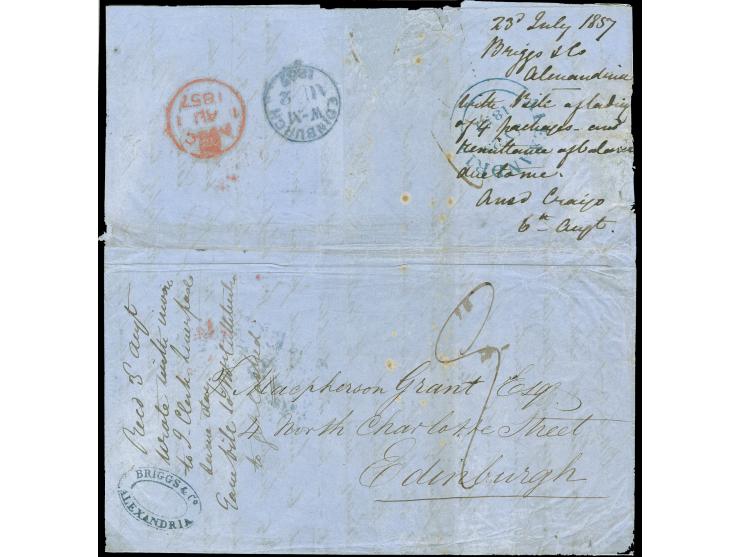 23d July 1857
Briggs & Co
Alexandria
with Bill of lading
of 4 packages and
remittance of balance
due to me.
Ansd Craigo
6th Augt.
EDINBURGH
W-M
AU 2
1857
AU 1
1857
Recd 3 Augt
wrote with
to J Clerk Liverpool
same day
Gave bill
to
T. Macpherson Grant Esq
4 North Charlotte Street
Edinburgh
BRIGGS & Co
ALEXANDRIA